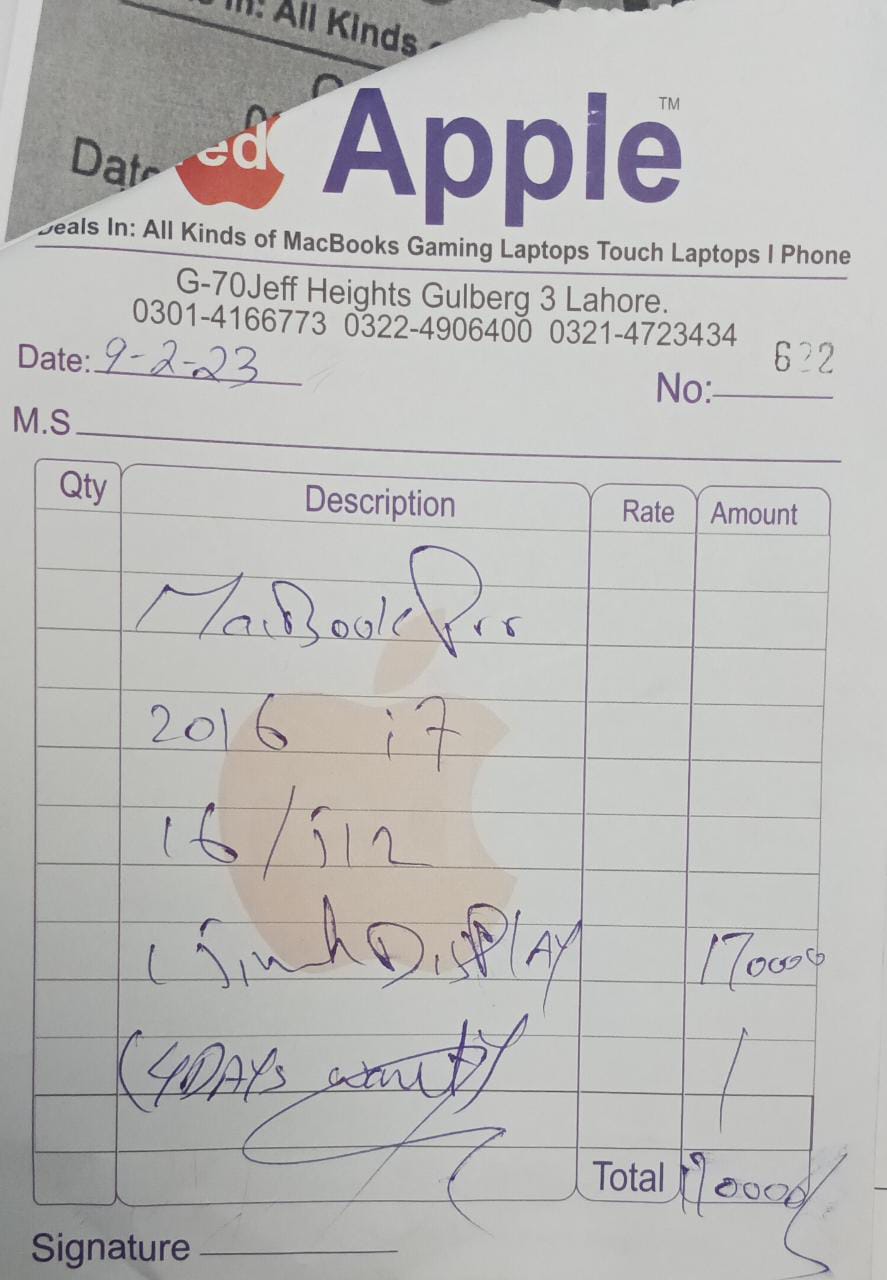 In: All Kinds
Date
ed Apple™
Deals In: All Kinds of MacBooks Gaming Laptops Touch Laptops I Phone
G-70Jeff Heights Gulberg 3 Lahore.
0301-4166773 0322-4906400 0321-4723434
Date: 9-2-23
No: 622
M.S
Qty Description Rate Amount
MacBook Pro
2016 i7
16/512
15inch DisPLAY 170000
(4DAYs
Total 170000
Signature